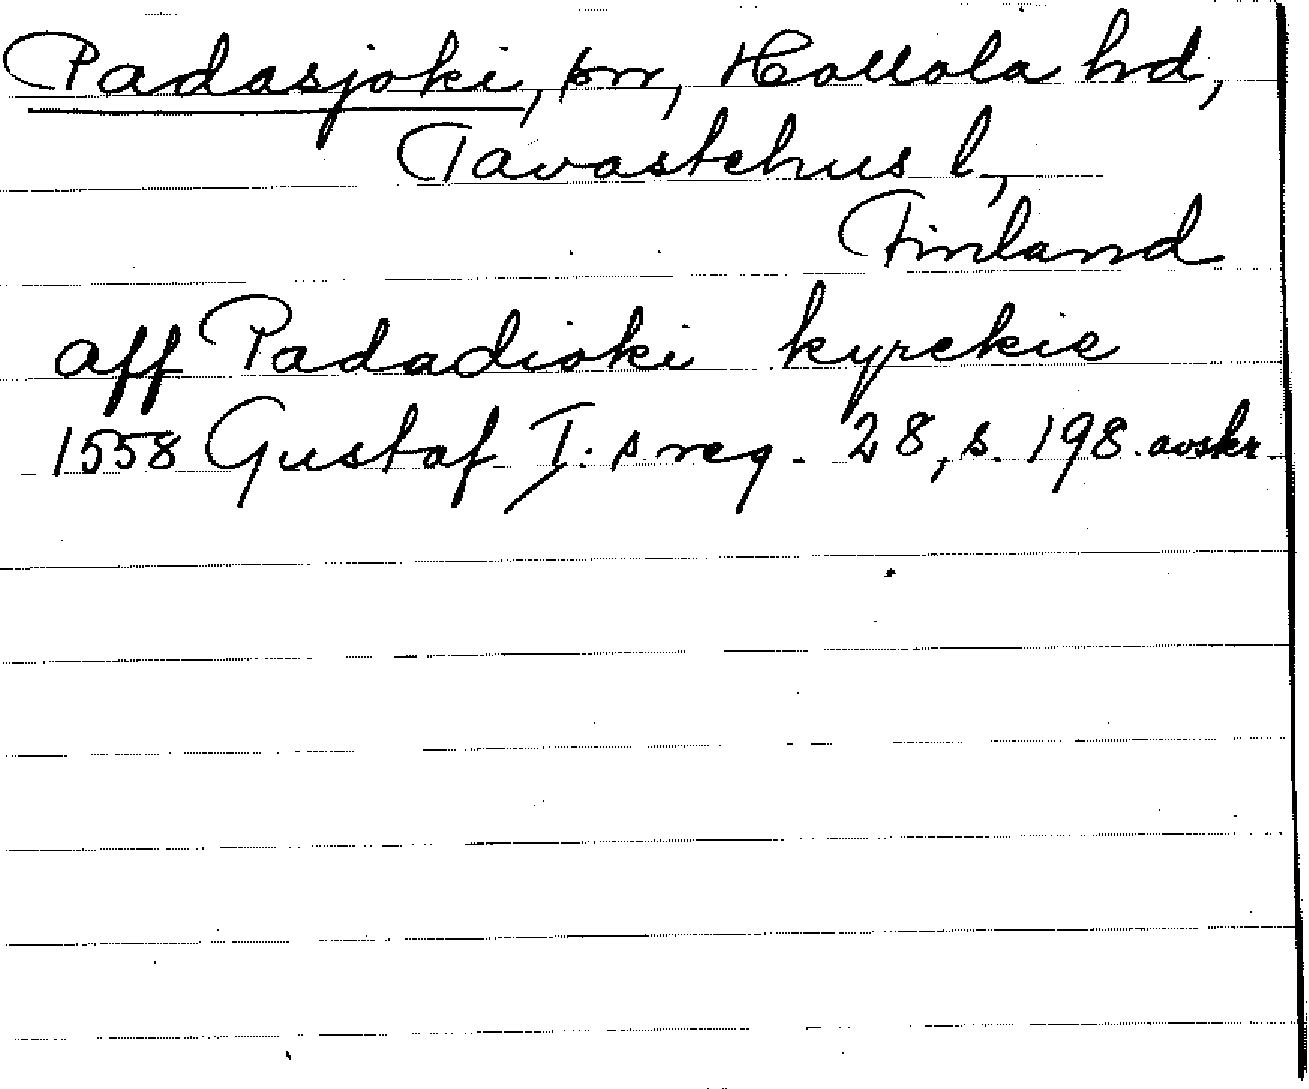 Padasjoki, sn, Hollola hd,
Tavastehus l,
Finland
aff Padadioki kyrckie
1558 Gustaf I:s reg. 28, s. 198. avskr.